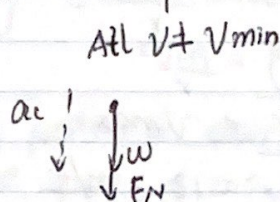 At V ≠ Vmin
ac
W
FN